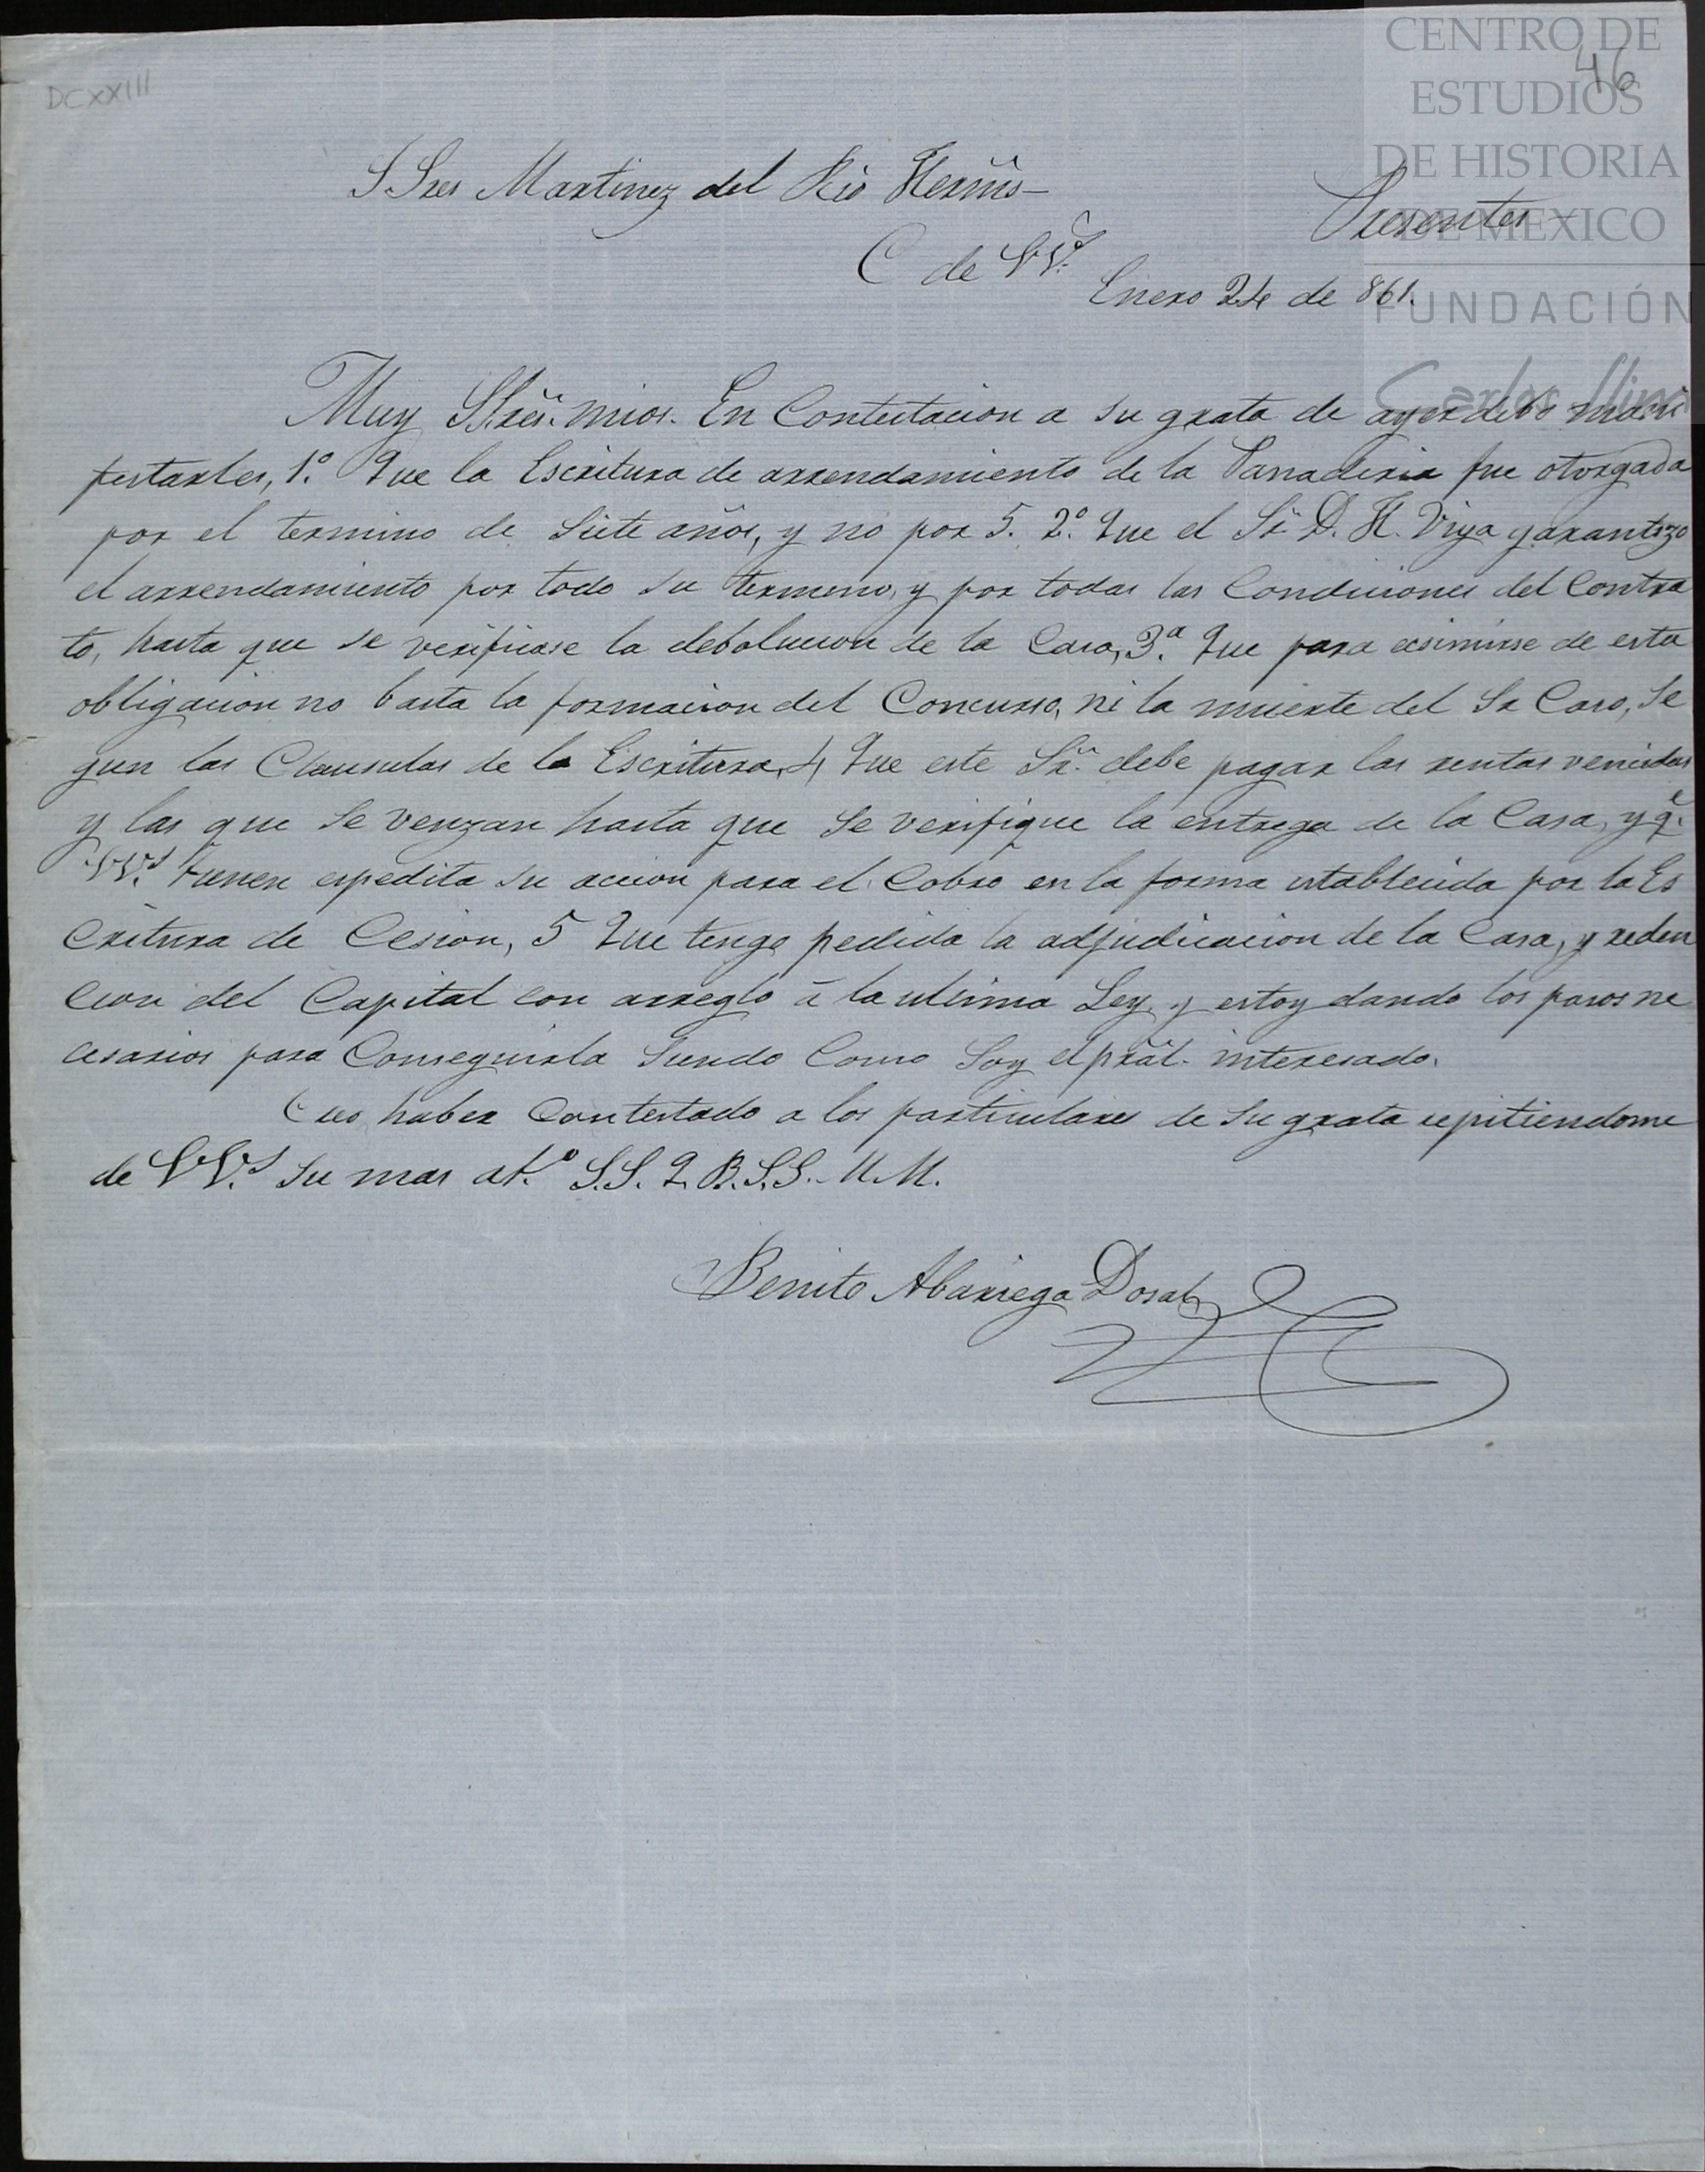 CENTRO DE
ESTUDIOS
DE HISTORIA
DE MEXICO
FUNDACIÓN
Carlos Slim
46
DCXXIII
S.Sres Martinez del Rio Herms
Presentes
C de VV.s
Enero 24 de 861.
Muy SSres. mios. En Contestacion a su grata de ayer debo mani
festarles, 1.º Que la Escritura de arrendamiento de la Panaderia fue otorgada
por el termino de Siete años, y no por 5. 2.º Que el Sr D. H. Viya garantizo
el arrendamiento por todo su termino, y por todas las Condiciones del Contra
to, hasta que se verificase la debolucion de la Casa, 3.ª Que para ecsimirse de esta
obligacion no basta la formacion del Concurso, ni la muerte del Sr Caso, Se
gun las Clausulas de la Escritura, 4 Que este Sr. debe pagar las rentas vencidas
y las que se venzan hasta que se verifique la entrega de la Casa, y q.e
VV.s tienen espedita su accion para el Cobro en la forma establecida por la Es
critura de Cesion, 5 Que tengo pedida la adjudicacion de la Casa, y reden
cion del Capital con arreglo á la ultima Ley, y estoy dando los pasos ne
cesarios para Conseguirla Siendo Como Soy el pral. interesado.
Creo haber Contestado a los particulares de su grata repitiendome
de VV.s su mas at.º S.S. Q. B. S.S. M.M.
Benito Abariega Dosal